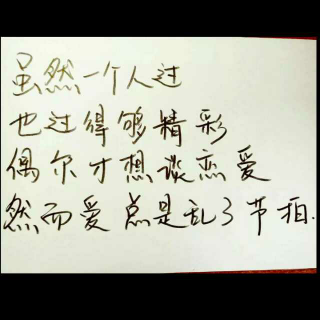 虽然一个人过
也过得够精彩
偶尔才想谈恋爱
然而爱总是乱了节拍.